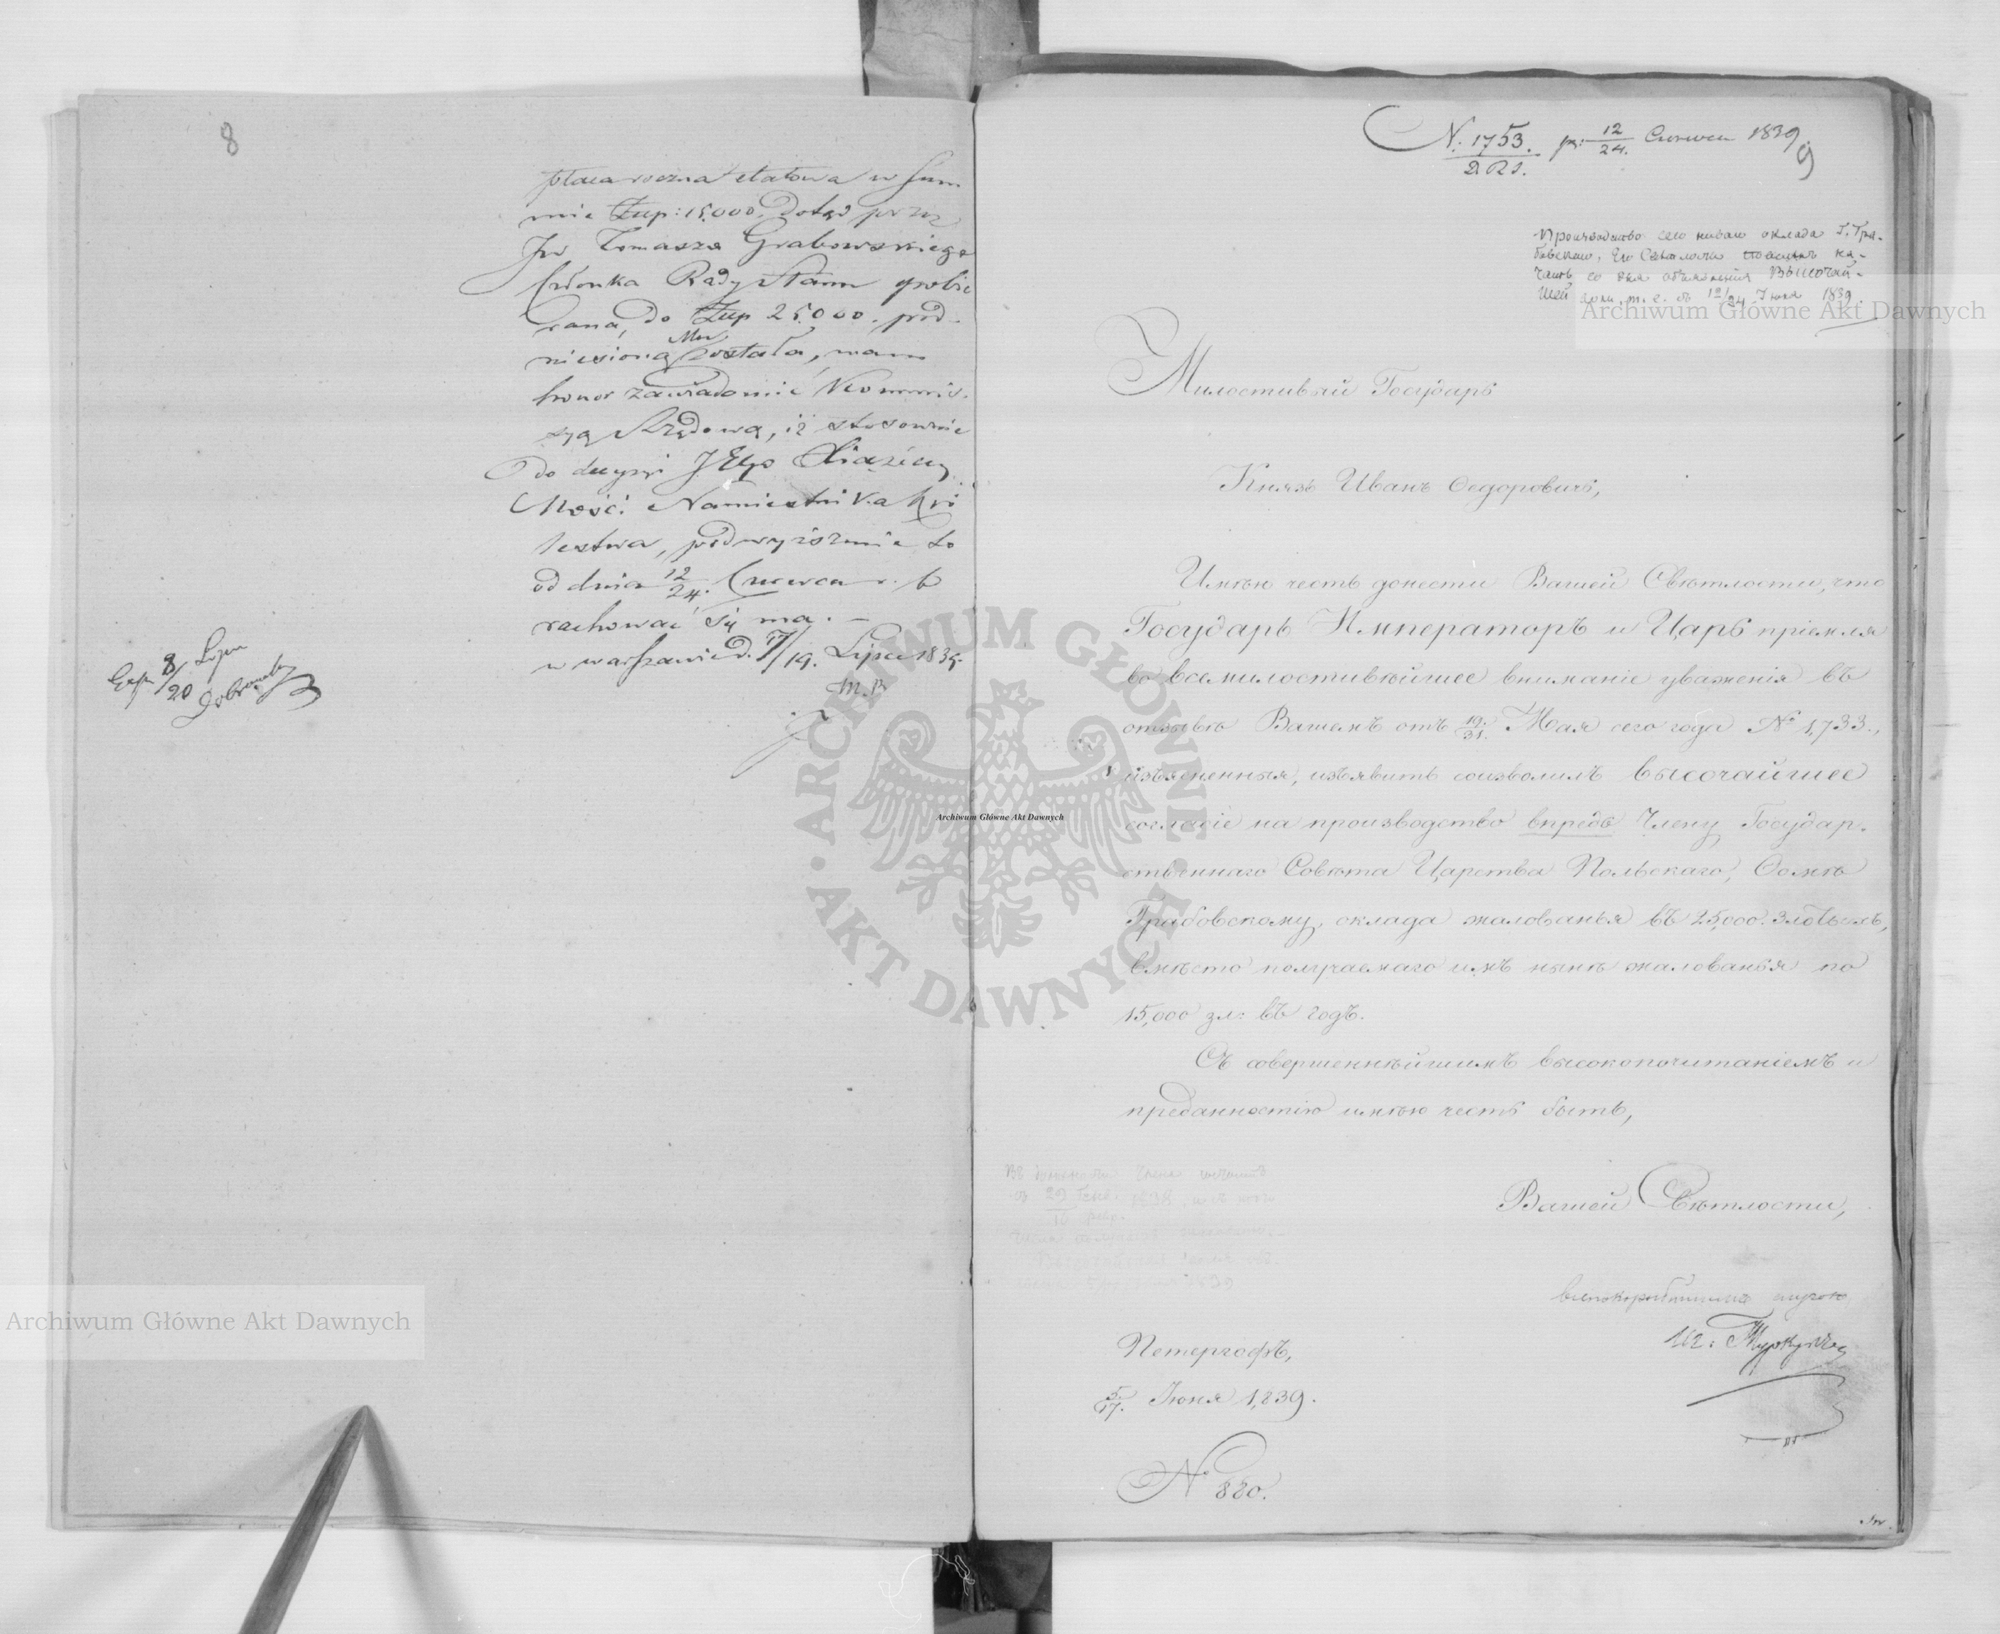 8
płaca roczna etatowa w Sum
mie Złp: 15,000. dotąd przez
JW Tomasza Grabowskiego
Członka Rady Stanu pobie
rana, do Złp 25,000. pod-
niesioną Mu została, mam
honor zawiadomić Kommis-
syą Rządową, iż stosownie
do decyzyi JEgo Xiążęcey
Mość: Namiestnika Kró
lestwa, podwyższenie to
od dnia 12/24. Czerwca r. b
rachować się ma. —
w Warszawie d. 7/19. Lipca 1839.
Exp. 8/20 Lipca
N. 1753. pr: 12/24. Czerwca 1839
9
Производство сего новаго оклада Г. Гра-
бовскому, Его Светлость на-
чать со дня объявленія Высочай-
шей воли, т. е. съ 12/24 Іюня 1839.
Милостивый Государь
Князь Иванъ Ѳедоровичь,
Имѣю честь донести Вашей Свѣтлости, что
Государь Императоръ и Царь пріемля
во всемилостивѣйшее вниманіе уваженія въ
отзывѣ Вашемъ отъ 19/31. Мая сего года № 1,733.,
изъясненныя, изъявить соизволилъ высочайшее
согласіе на производство впредь Члену Государ-
ственнаго Совѣта Царства Польскаго, Ѳомѣ
Грабовскому, оклада жалованья въ 25,000. злотыхъ,
вмѣсто получаемаго имъ нынѣ жалованья по
15,000 зл: въ годъ.
Съ совершеннѣйшимъ высокопочитаніемъ и
преданностію имѣю честь быть,
Вашей Свѣтлости,
всепокорнѣйшимъ слугою
Иг: Туркулъ
Петергофъ,
5/17. Іюня 1,839.
№ 880.
Archiwum Główne Akt Dawnych
Archiwum Główne Akt Dawnych
Archiwum Główne Akt Dawnych
ARCHIWUM GŁÓWNE · AKT DAWNYCH ·